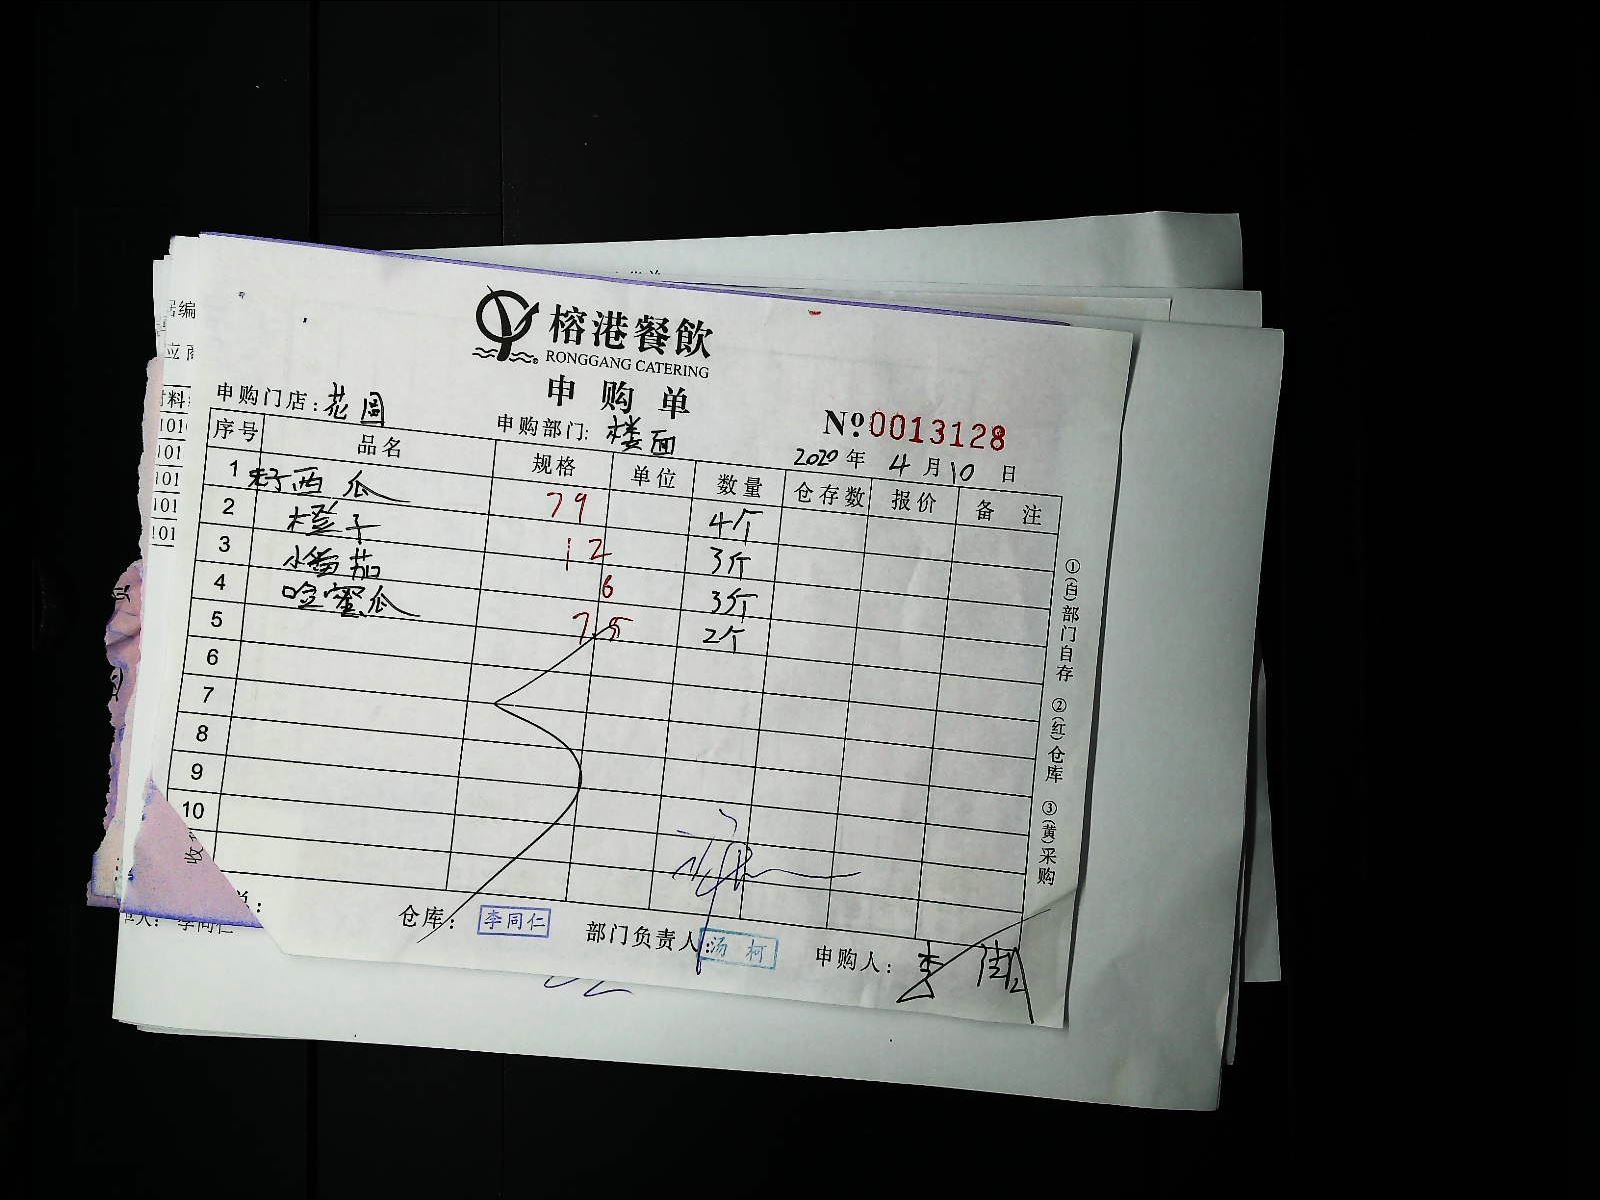 榕港餐飲
RONGGANG CATERING
申购单
申购门店：花园
申购部门：楼面
№0013128
2020年4月10日
序号 品名 规格 单位 数量 仓存数 报价 备注
1 西瓜 79 4个
2 橙子 12 3斤
3 小番茄 6 3斤
4 哈蜜瓜 75 2个
5
6
7
8
9
10
①(白)部门自存 ②(红)仓库 ③(黄)采购
仓库：李同仁 部门负责人：汤柯 申购人：李
居编
应商
材料
101
101
101
101
101
收
单：
李同仁